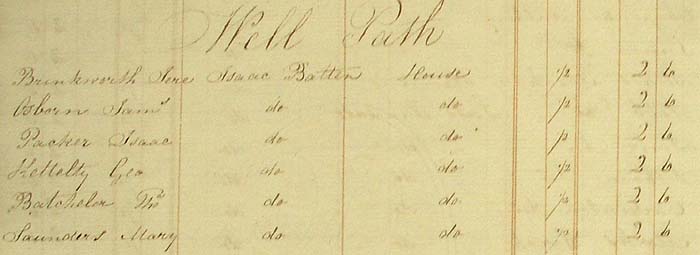 Well Path
Brinkworth Jere Isaac Batten House 1/2 2 6
Osborn Saml do do 1/2 2 6
Packer Isaac do do 1/2 2 6
Kettelty Geo do do 1/2 2 6
Batchelor Thos do do 1/2 2 6
Saunders Mary do do 1/2 2 6